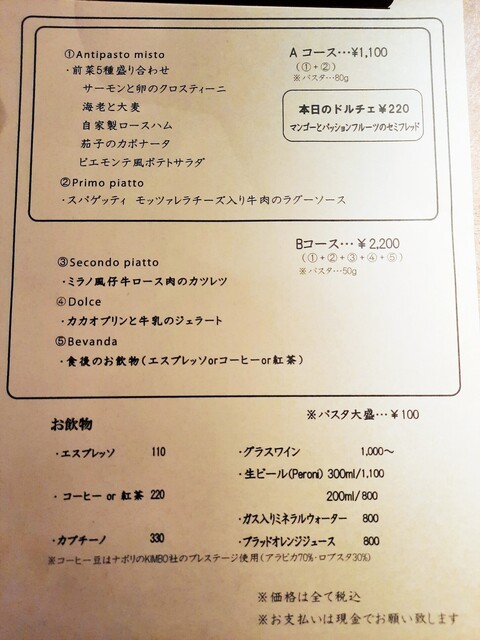 ①Antipasto misto
Aコース…¥1,100
・前菜5種盛り合わせ
(①+②)
※パスタ…80g
サーモンと卵のクロスティーニ
海老と大麦
自家製ロースハム
茄子のカポナータ
ピエモンテ風ポテトサラダ
本日のドルチェ¥220
マンゴーとパッションフルーツのセミフレッド
②Primo piatto
・スパゲッティ モッツァレラチーズ入り牛肉のラグーソース
Bコース…¥2,200
(①+②+③+④+⑤)
※パスタ…50g
③Secondo piatto
・ミラノ風仔牛ロース肉のカツレツ
④Dolce
・カカオプリンと牛乳のジェラート
⑤Bevanda
・食後のお飲物(エスプレッソorコーヒーor紅茶)
※パスタ大盛…¥100
お飲物
・エスプレッソ 110
・コーヒー or 紅茶 220
・カプチーノ 330
・グラスワイン 1,000～
・生ビール(Peroni) 300ml/1,100
200ml/800
・ガス入りミネラルウォーター 800
・ブラッドオレンジジュース 800
※コーヒー豆はナポリのKIMBO社のプレステージ使用(アラビカ70%・ロブスタ30%)
※価格は全て税込
※お支払いは現金でお願い致します